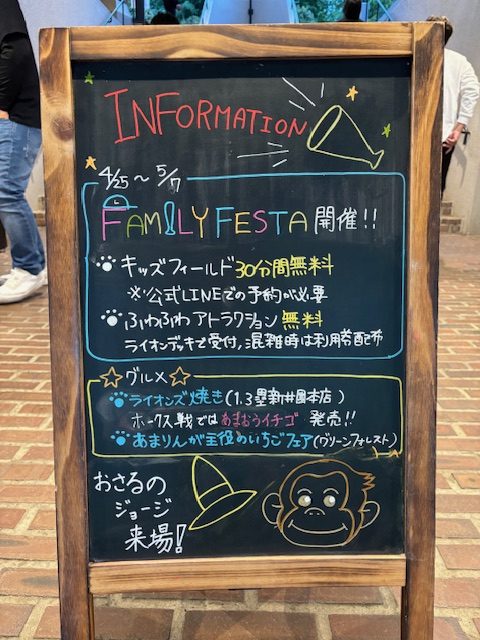 INFORMATION
4/25～5/7
FAMILY FESTA 開催!!
キッズフィールド30分間無料
※公式LINEでの予約が必要
ふわふわアトラクション 無料
ライオンデッキで受付,混雑時は利用券配布
☆グルメ☆
ライオンズ焼き(1.3塁新井園本店)
ホークス戦ではあまおうイチゴ 発売!!
あまりんが主役のいちごフェア(グリーンフォレスト)
おさるの
ジョージ
来場!